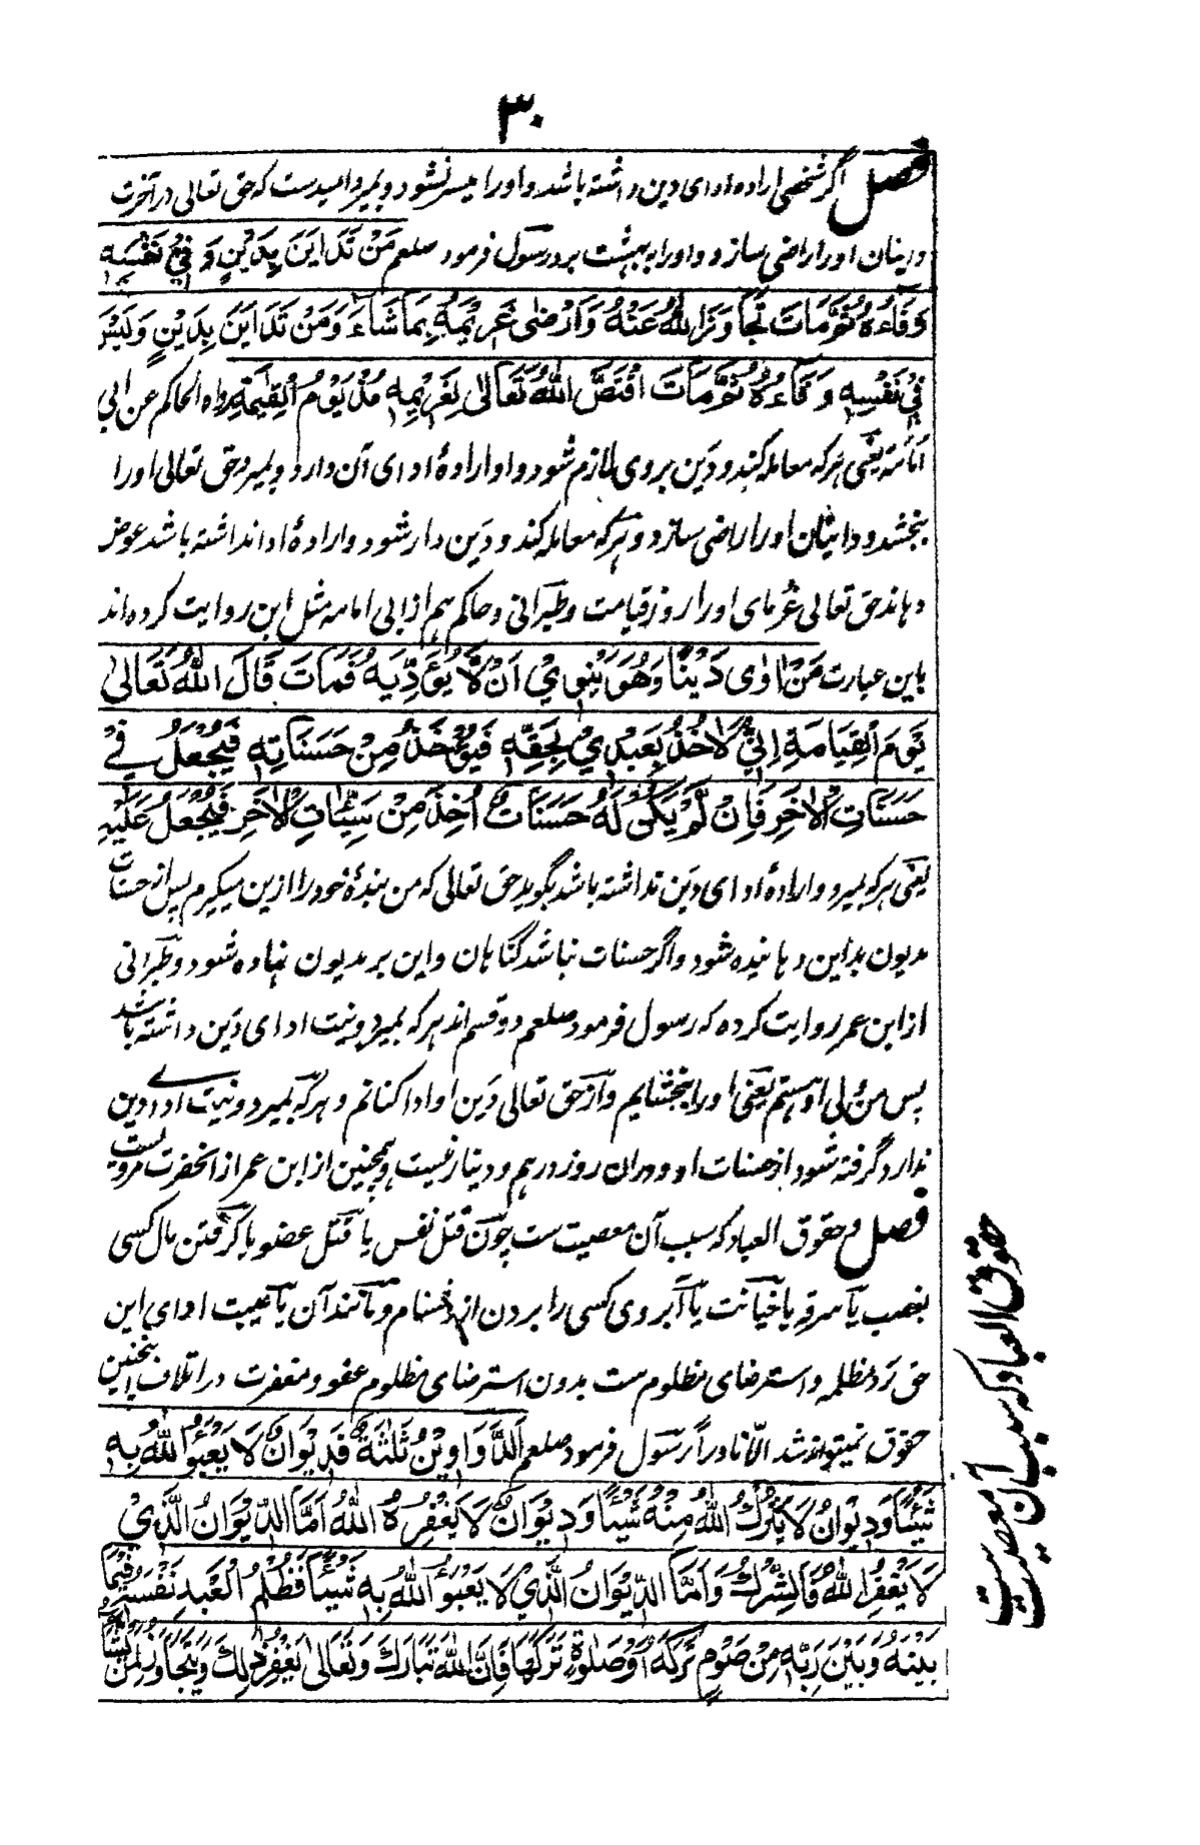 ۳۰
فصل اگر شخصی اراده ادای دین داشته باشد و اورا میسر نشود و بمیرد امیدست که حق تعالی در آخرت
داینان اورا راضی سازد و اورا به بهشت برد رسول فرمود صلعم مَنْ تَدَايَنَ بِدَيْنٍ وَ فِيْ نَفْسِهٖ
وَفَاءُهُ ثُمَّ مَاتَ تَجَاوَزَ اللّٰهُ عَنْهُ وَاَرْضٰى غَرِيْمَهٗ بِمَا شَاءَ وَمَنْ تَدَايَنَ بِدَيْنٍ وَلَيْسَ
فِيْ نَفْسِهٖ وَفَاءُهُ ثُمَّ مَاتَ اقْتَصَّ اللّٰهُ تَعَالٰى لِغَرِيْمِهٖ مِنْهُ يَوْمَ الْقِيٰمَةِ رواه الحاکم عن ابی
امامة یعنی هر که معامله کند و دَین بر وی لازم شود و او ارادهٔ ادای آن دارد و بمیرد حق تعالی اورا
بخشد و داینان اورا راضی سازد و هر که معامله کند و دَین دار شود و ارادهٔ ادا نداشته باشد عوض
دهاند حق تعالی غرمای اورا روز قیامت و طبرانی و حاکم هم از ابی امامه مثل این روایت کرده اند
باین عبارت مَنْ اَوٰى دَيْنًا وَهُوَ يَنْوِيْ اَنْ لَا يُؤَدِّيَهٗ فَمَاتَ قَالَ اللّٰهُ تَعَالٰى
يَوْمَ الْقِيَامَةِ اِنِّيْ لَاٰخُذُ لِعَبْدِيْ بِحَقِّهٖ فَيُؤْخَذُ مِنْ حَسَنَاتِهٖ فَيُجْعَلُ فِيْ
حَسَنَاتِ الْاٰخَرِ فَاِنْ لَّمْ يَكُنْ لَهٗ حَسَنَاتٌ اُخِذَ مِنْ سَيِّئَاتِ الْاٰخَرِ فَيُجْعَلُ عَلَيْهِ
یعنی هر که بمیرد و ارادهٔ ادای دَین نداشته باشد بگوید حق تعالی که من بندهٔ خود را ازین میگیرم پس از حسنات
مدیون بداین دهانیده شود و اگر حسنات نباشد گناهان داین بر مدیون نهاده شود و طبرانی
از ابن عمر روایت کرده که رسول فرمود صلعم دو قسم اند هر که بمیرد و نیت ادای دَین داشته باشد
پس من ولی او هستم یعنی اورا بخشایم و از حق تعالی دَین او ادا کنانم و هر که بمیرد و نیت ادای دین
ندارد گرفته شود از حسنات او دران روز درهم و دینار نیست و همچنین از ابن عمر از انحضرت مرویست
فصل و حقوق العباد که سبب آن معصیت ست چون قتل نفس یا قتل عضو یا گرفتن مال کسی
بغصب یا سرقه یا خیانت یا آبروی کسی را بردن از دشنام و مانند آن یا غیبت ادای این
حق رَد مظلمه و استرضای مظلوم ست بدون استرضای مظلوم عفو و مغفرت در اتلاف اینچنین
حقوق نمیتواند شد الّا نادراً رسول فرمود صلعم اَلدَّوَاوِيْنُ ثَلٰثَةٌ فَدِيْوَانٌ لَا يَعْبَؤُ اللّٰهُ بِهٖ
شَيْئًا وَدِيْوَانٌ لَا يَتْرُكُ اللّٰهُ مِنْهُ شَيْئًا وَدِيْوَانٌ لَا يَغْفِرُهُ اللّٰهُ اَمَّا الدِّيْوَانُ الَّذِيْ
لَا يَغْفِرُ اللّٰهُ فَالشِّرْكُ وَاَمَّا الدِّيْوَانُ الَّذِيْ لَا يَعْبَؤُ اللّٰهُ بِهٖ شَيْئًا فَظُلْمُ الْعَبْدِ نَفْسَهٗ فِيْمَا
بَيْنَهٗ وَبَيْنَ رَبِّهٖ مِنْ صَوْمٍ تَرَكَهٗ اَوْ صَلٰوةٍ تَرَكَهَا فَاِنَّ اللّٰهَ تَبَارَكَ وَتَعَالٰى يَغْفِرُ ذٰلِكَ وَيَتَجَاوَزُ لِمَنْ يَّشَاءُ
حقوق العباد که سبب آن معصیت ست